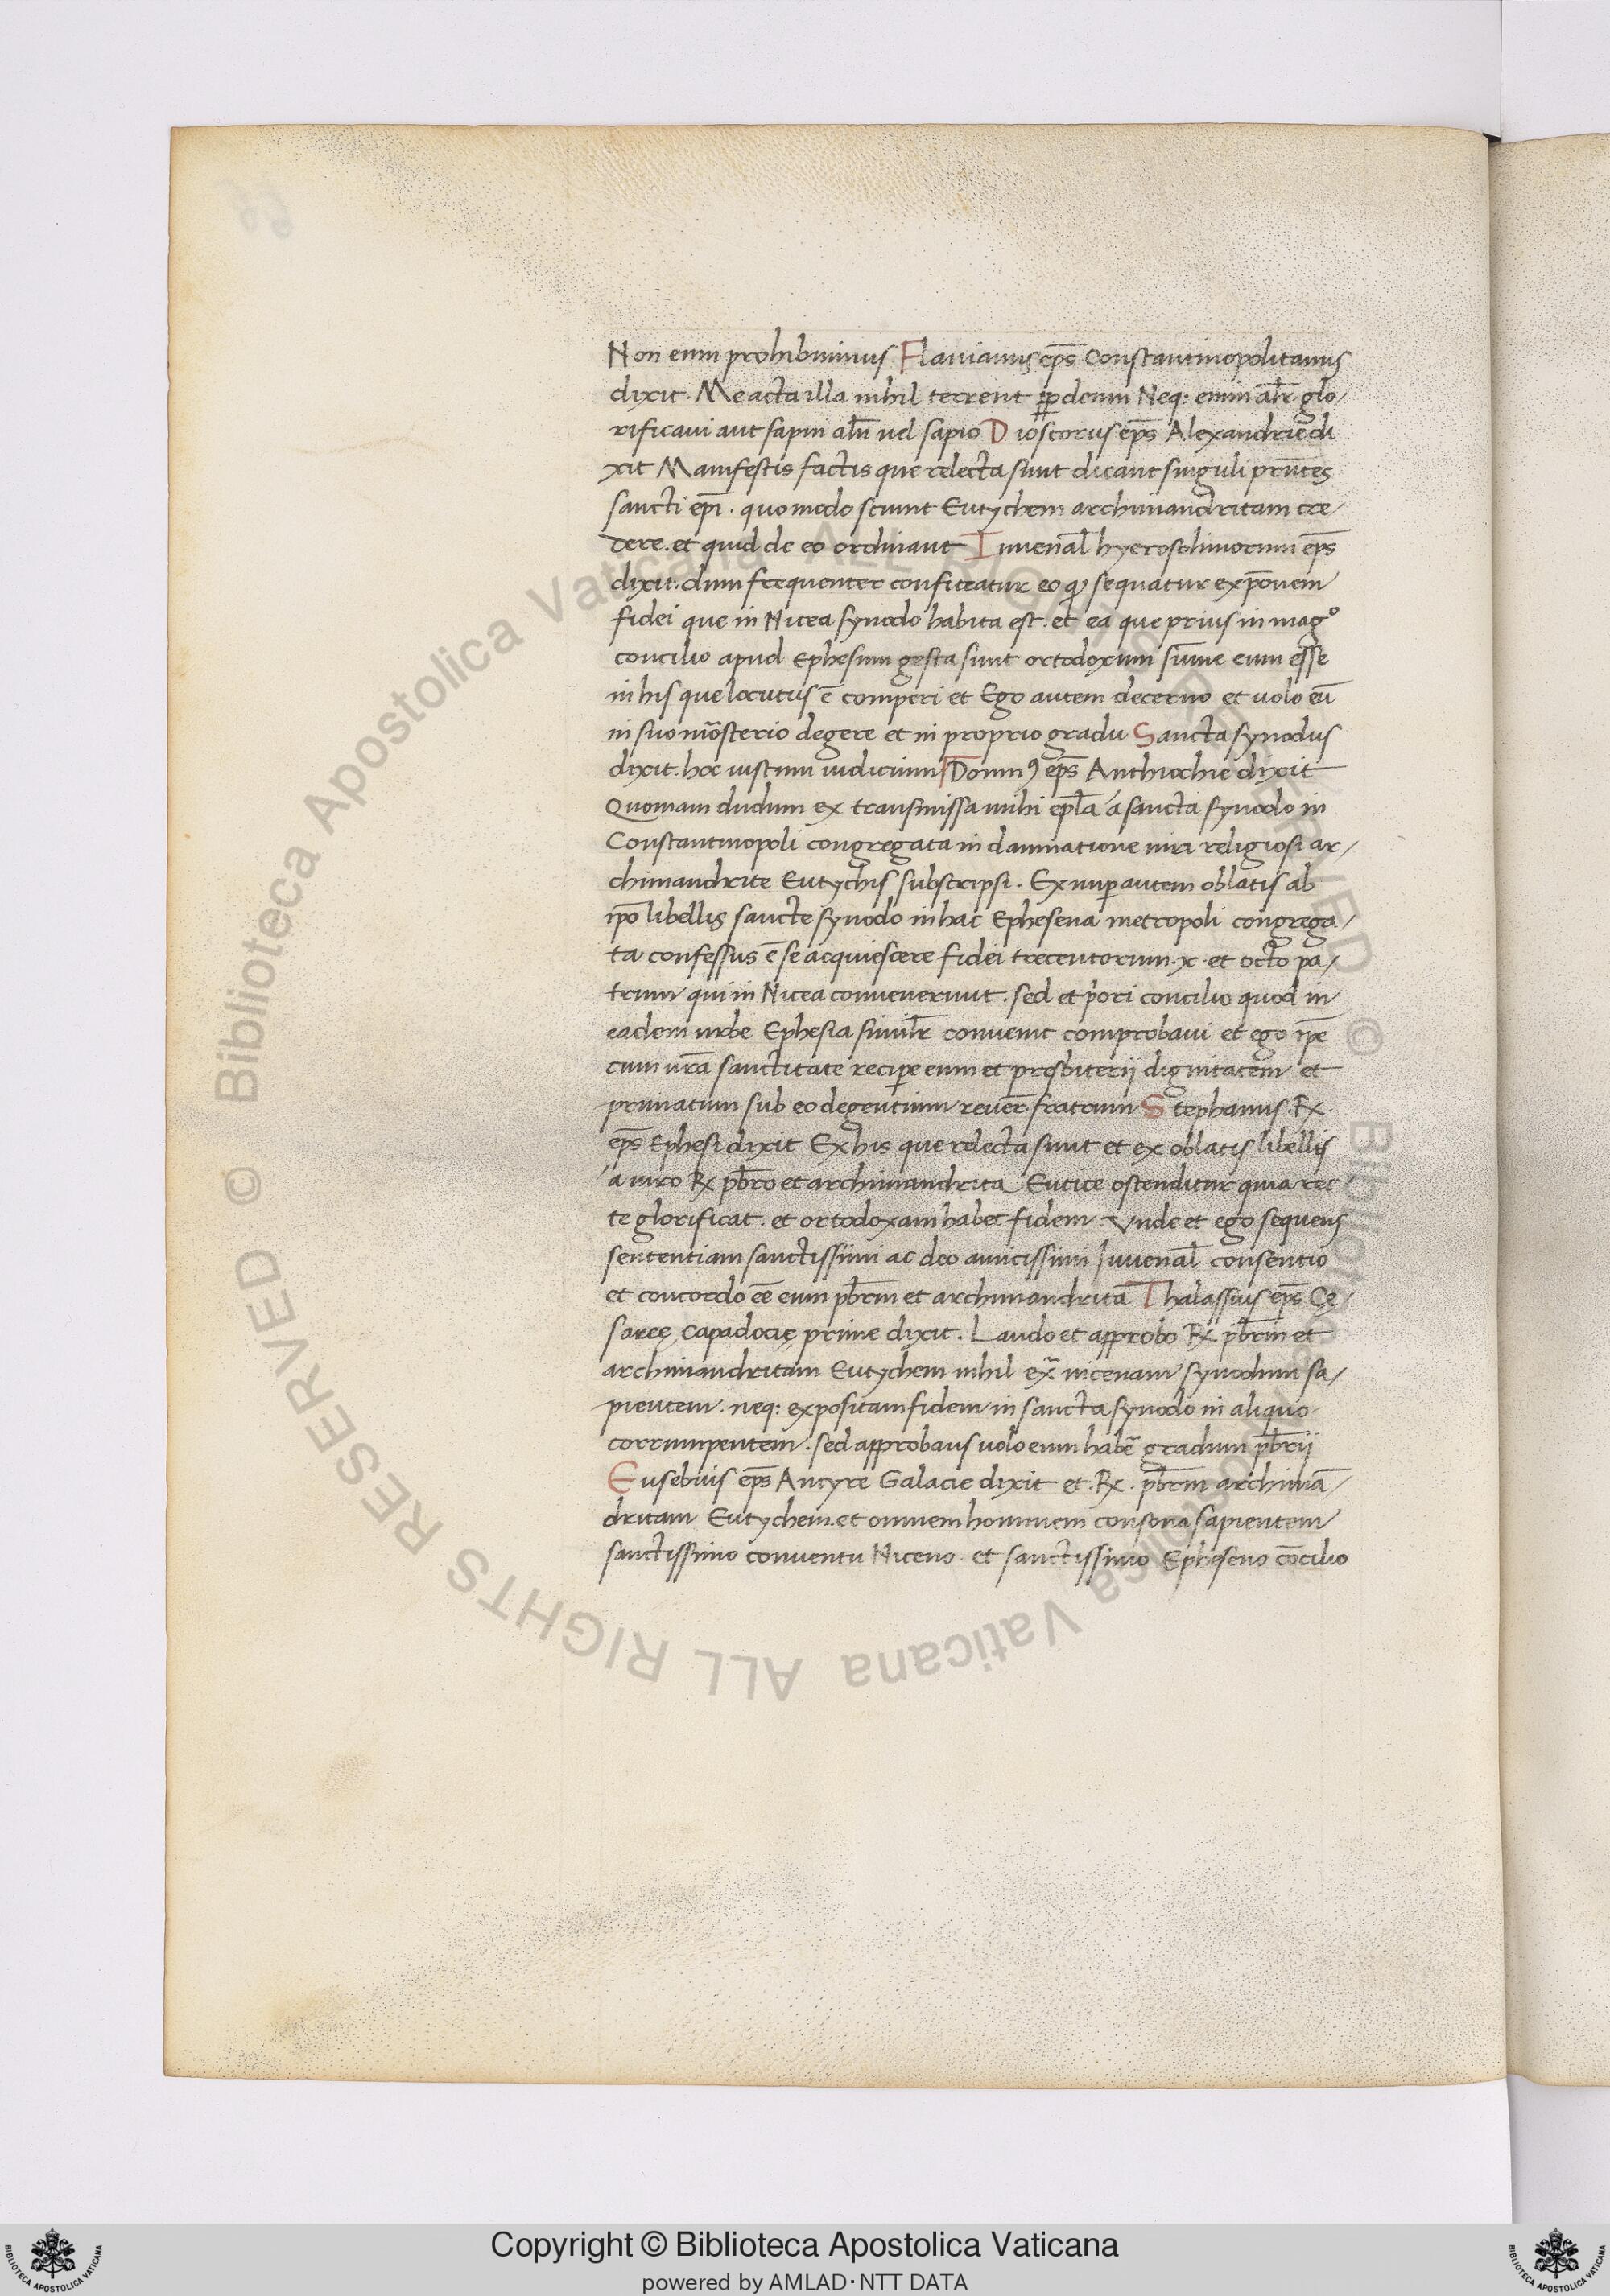 Non enim prohibuimus Flauianus ep̄s Constantinopolitanus
dixit. Me acta illa nihil terrent ꝑ deum Neq: enim alr̄ glo/
rificaui aut sapui alit̄ uel sapio Dioscorus ep̄s Alexandrie di
xit Manifestis factis que relecta sunt dicant singuli pn̄tes
sancti ep̄i. quomodo sciunt Eutychem archimandritam cre/
dere. et quid de eo ordinant Iuuenal̄ hyerosolimorum ep̄s
dixit. dum frequenter confiteatur eo ꝙ sequatur exp̄onem
fidei que in Nicea synodo habita est. et ea que prius in magº
concilio apud Ephesum gesta sunt ortodoxum sum̄e eum esse
in his que locutus ē comperi et Ego autem decerno et uolo eū
in suo mōsterio degere et in proprio gradu Sancta synodus
dixit. hoc iustum iudicium Domnꝰ ep̄s Anthiochie dixit
Quoniam dudum ex transmissa mihi epl̄a a sancta synodo in
Constantinopoli congregata in damnatione uiri religiosi ar/
chimandrite Eutychis subscripsi. Ex nuper autem oblatis ab
ip̄o libellis sancte synodo in hac Ephesena metropoli congrega/
ta confessus ē se acquiescere fidei trecentorum. x. et octo pa/
trum qui in Nicea conuenerunt. sed et priori concilio quod in
eadem urbe Ephesia simil̄r conuenit comprobaui et ego ip̄e
cum ur̄a sanctitate recipere eum et presbiterij dignitatem et
primatum sub eo degentium reuer̄. fratrum Stephanus. Rx
ep̄s Ephesi dixit Ex his que relecta sunt et ex oblatis libellis
a uiro Rx pb̄ro et archimandrita Eutice ostenditur quia rec/
te glorificat. et ortodoxam habet fidem. Vnde et ego sequens
sententiam sanctissimi ac deo amicissimi Juuenal̄ consentio
et concordo eē eum pb̄rm et archimandritā Thalassius ep̄s Cę/
sareę Capadocię prime dixit. Laudo et approbo Rx pb̄rm et
archimandritam Eutychem nihil ex̄ nicenam synodum sa/
pientem. neq: expositam fidem in sancta synodo in aliquo
corrumpentem. sed approbans uolo eum habē gradum pb̄rij
Eusebius ep̄s Ancyre Galacie dixit et. Rx. pb̄rm archimā/
dritam Eutychem. et omnem hominem consona sapientem
sanctissimo conuentu Niceno. et sanctissimo Epheseno cōcilio
© Biblioteca Apostolica Vaticana ALL RIGHTS RESERVED © Biblioteca Apostolica Vaticana ALL RIGHTS RESERVED
Copyright © Biblioteca Apostolica Vaticana
powered by AMLAD·NTT DATA
BIBLIOTECA APOSTOLICA VATICANA
BIBLIOTECA APOSTOLICA VATICANA